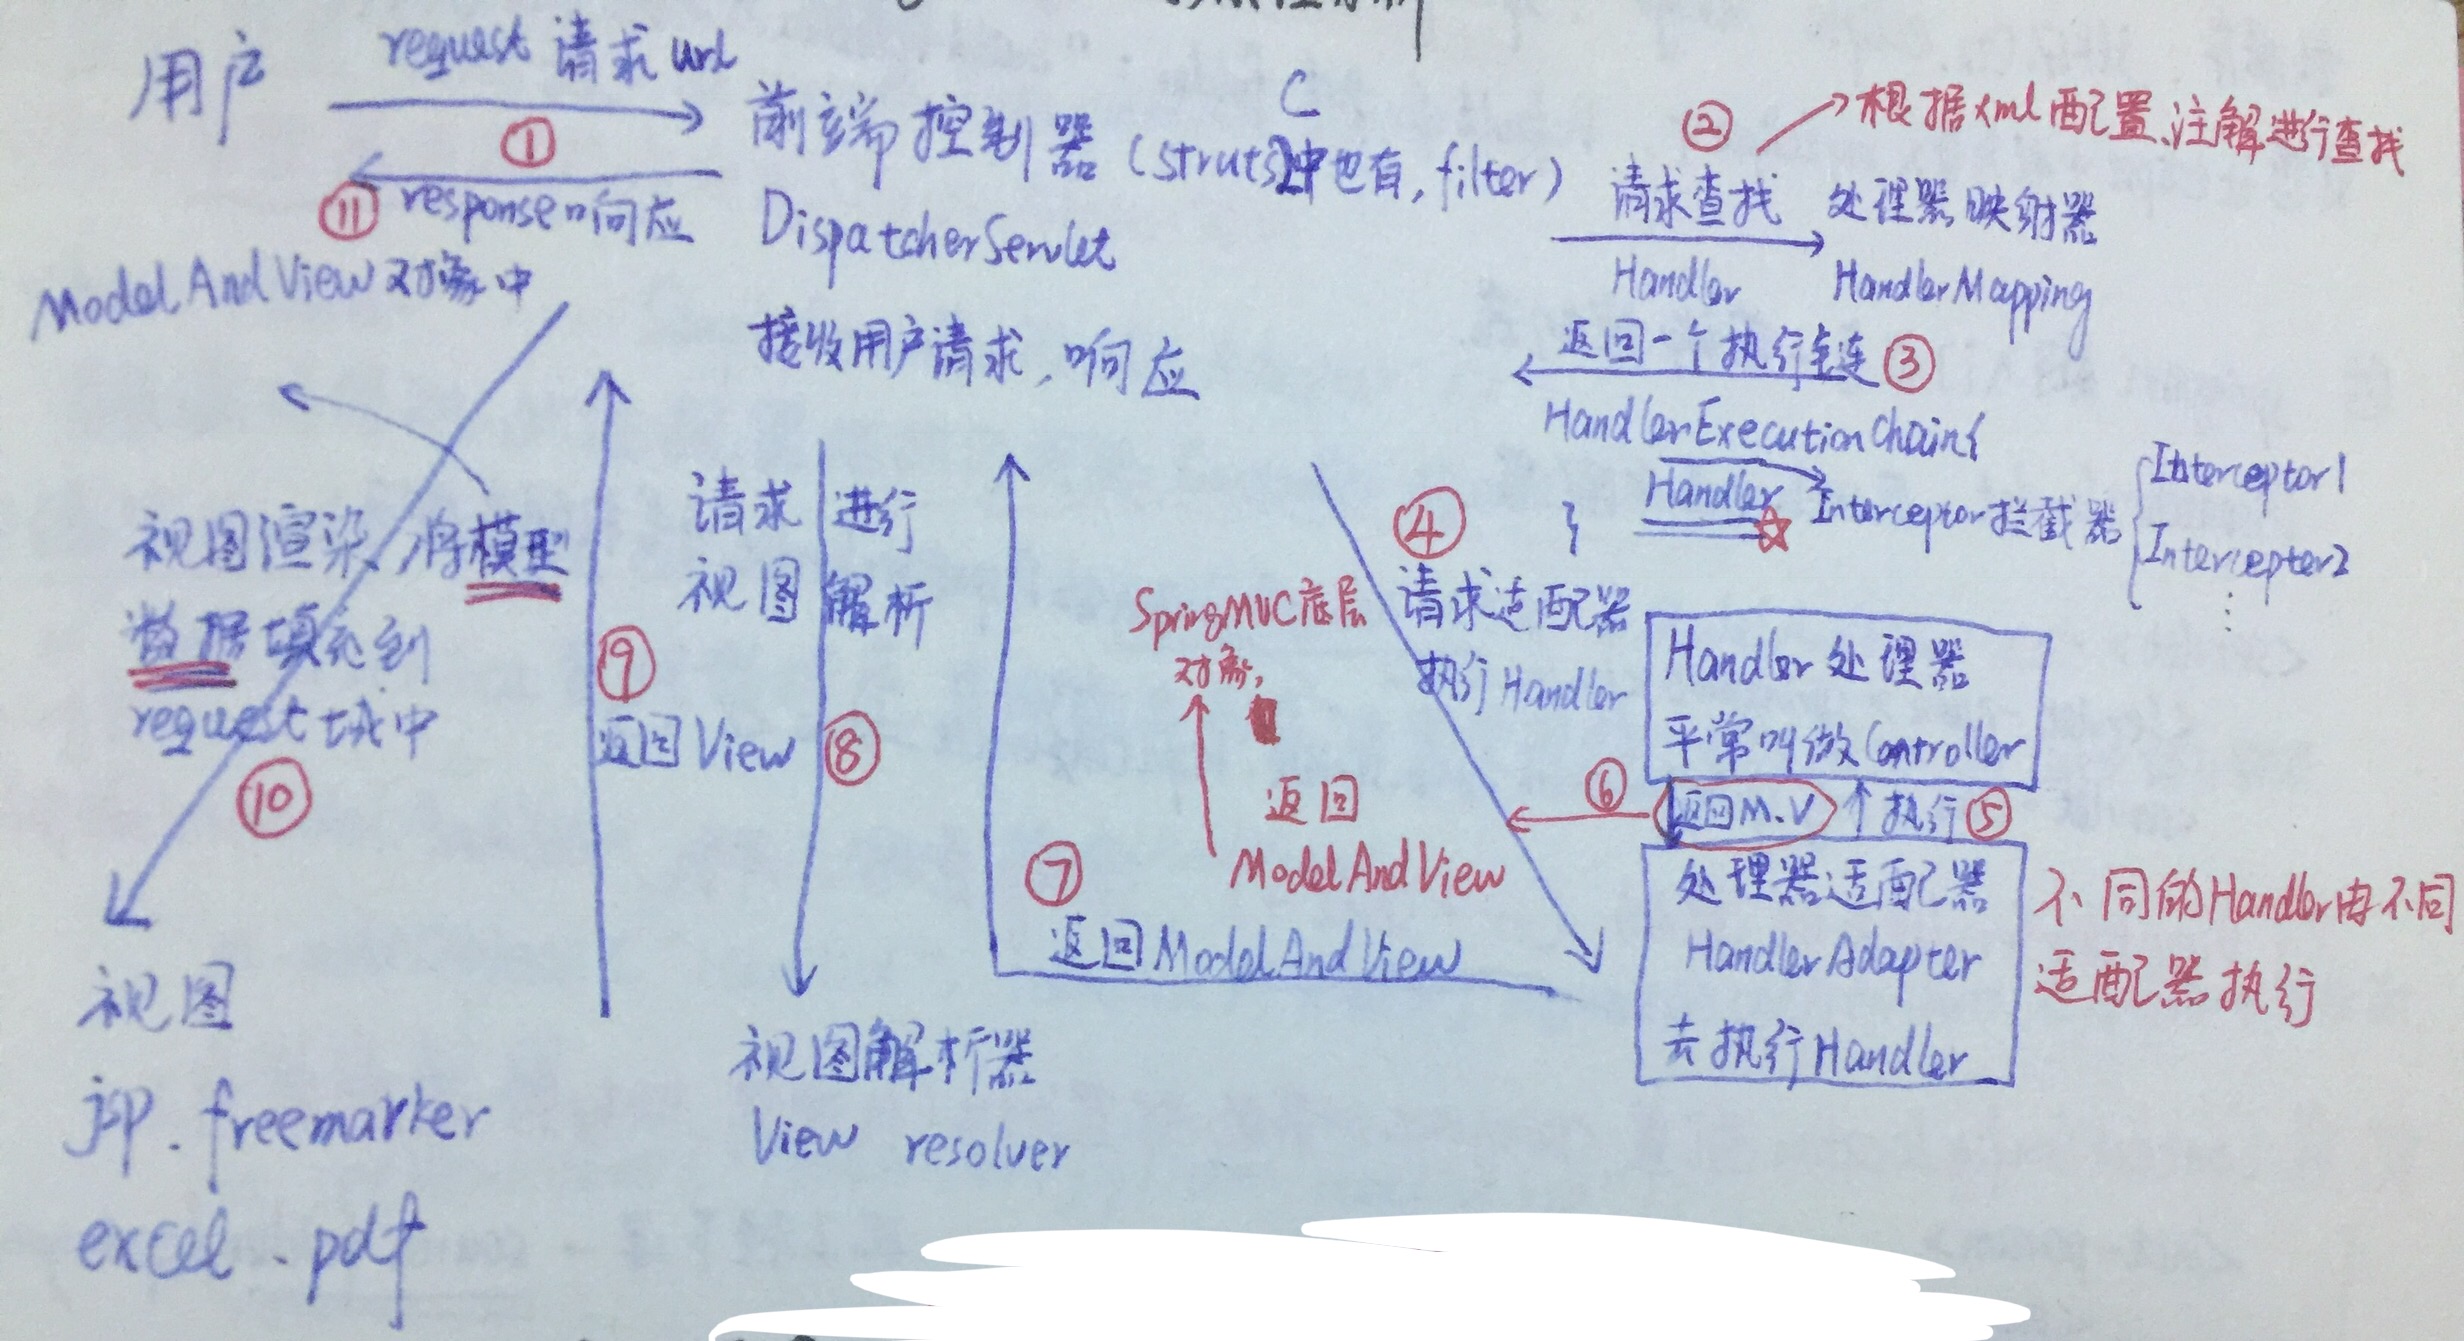 用户
request 请求 url
①
⑪ response 响应
ModelAndView 对象中
C
前端控制器 (struts2中也有, filter)
DispatcherServlet
接收用户请求, 响应
②
根据xml配置、注解进行查找
请求查找
Handler
处理器映射器
HandlerMapping
返回一个执行链 ③
HandlerExecutionChain{
Handler
}
Interceptor拦截器
Interceptor1
Interceptor2
⋮
④
请求适配器
执行Handler
Handler处理器
平常叫做Controller
返回M.V
执行 ⑤
⑥
处理器适配器
HandlerAdapter
去执行Handler
不同的Handler由不同
适配器执行
SpringMVC底层
对象,
返回
ModelAndView
⑦
返回ModelAndView
请求进行
视图解析
⑧
视图解析器
View resolver
⑨
返回View
视图渲染,将模型
数据填充到
request域中
⑩
视图
jsp.freemarker
excel.pdf